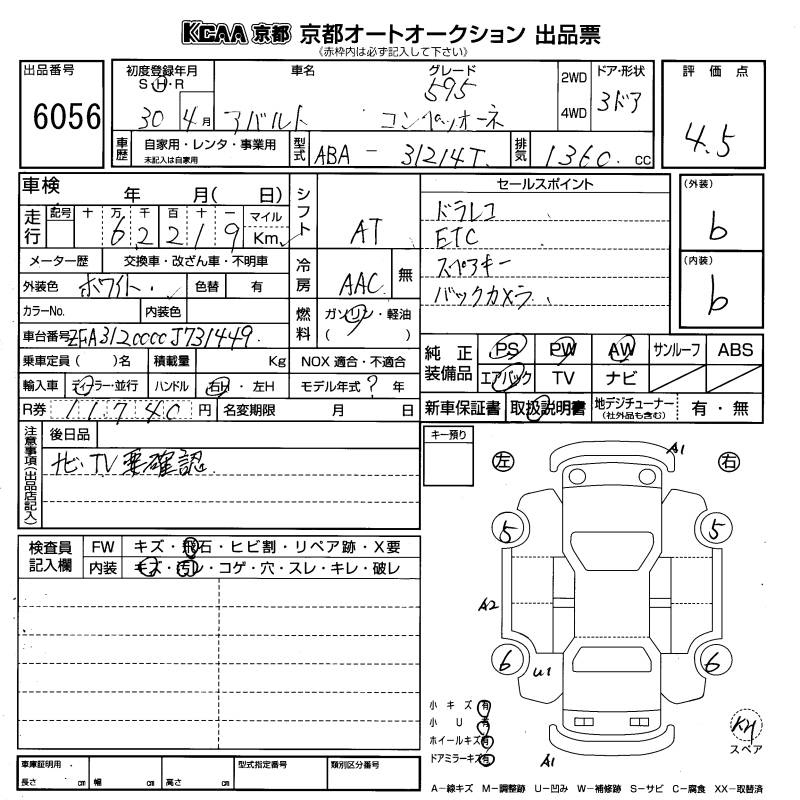 KCAA 京都 京都オートオークション 出品票
《赤枠内は必ず記入して下さい》
出品番号 6056
初度登録年月 S・H・R 30 4月
車名 アバルト
グレード 595 コンペティオーネ
2WD 4WD
ドア・形状 3ドア
評価点 4.5
車歴 自家用・レンタ・事業用
未記入は自家用
型式 ABA - 31214T
排気 1360 cc
車検 年 月( 日)
シフト AT
セールスポイント
ドラレコ
ETC
スペアキー
バックカメラ
(外装) b
(内装) b
走行 記号 十 万 千 百 十 一 マイル Km
6 2 2 1 9
メーター歴 交換車・改ざん車・不明車
冷房 AAC 無
外装色 ホワイト 色替 有
カラーNo. 内装色
燃料 ガソリン・軽油 ( )
車台番号 ZFA3120000J731449
乗車定員 ( )名 積載量 Kg NOX 適合・不適合
輸入車 ディーラー・並行 ハンドル 右H・左H モデル年式 ? 年
R券 11740 円 名変期限 月 日
純正装備品 PS PW AW サンルーフ ABS
エアバック TV ナビ
新車保証書 取扱説明書 地デジチューナー (社外品も含む) 有・無
注意事項(出品店記入) 後日品
ナビ・TV要確認
キー預り
左 右
A1
5 5
A2
6 6
U1
A1
検査員記入欄 FW キズ・飛石・ヒビ割・リペア跡・X要
内装 キズ・汚レ・コゲ・穴・スレ・キレ・破レ
小キズ 有
小U 有
ホイールキズ 有
ドアミラーキズ 有
スペア
車庫証明用 長さ cm 幅 cm 高さ cm 型式指定番号 類別区分番号
A−線キズ M−調整跡 U−凹み W−補修跡 S−サビ C−腐食 XX−取替済